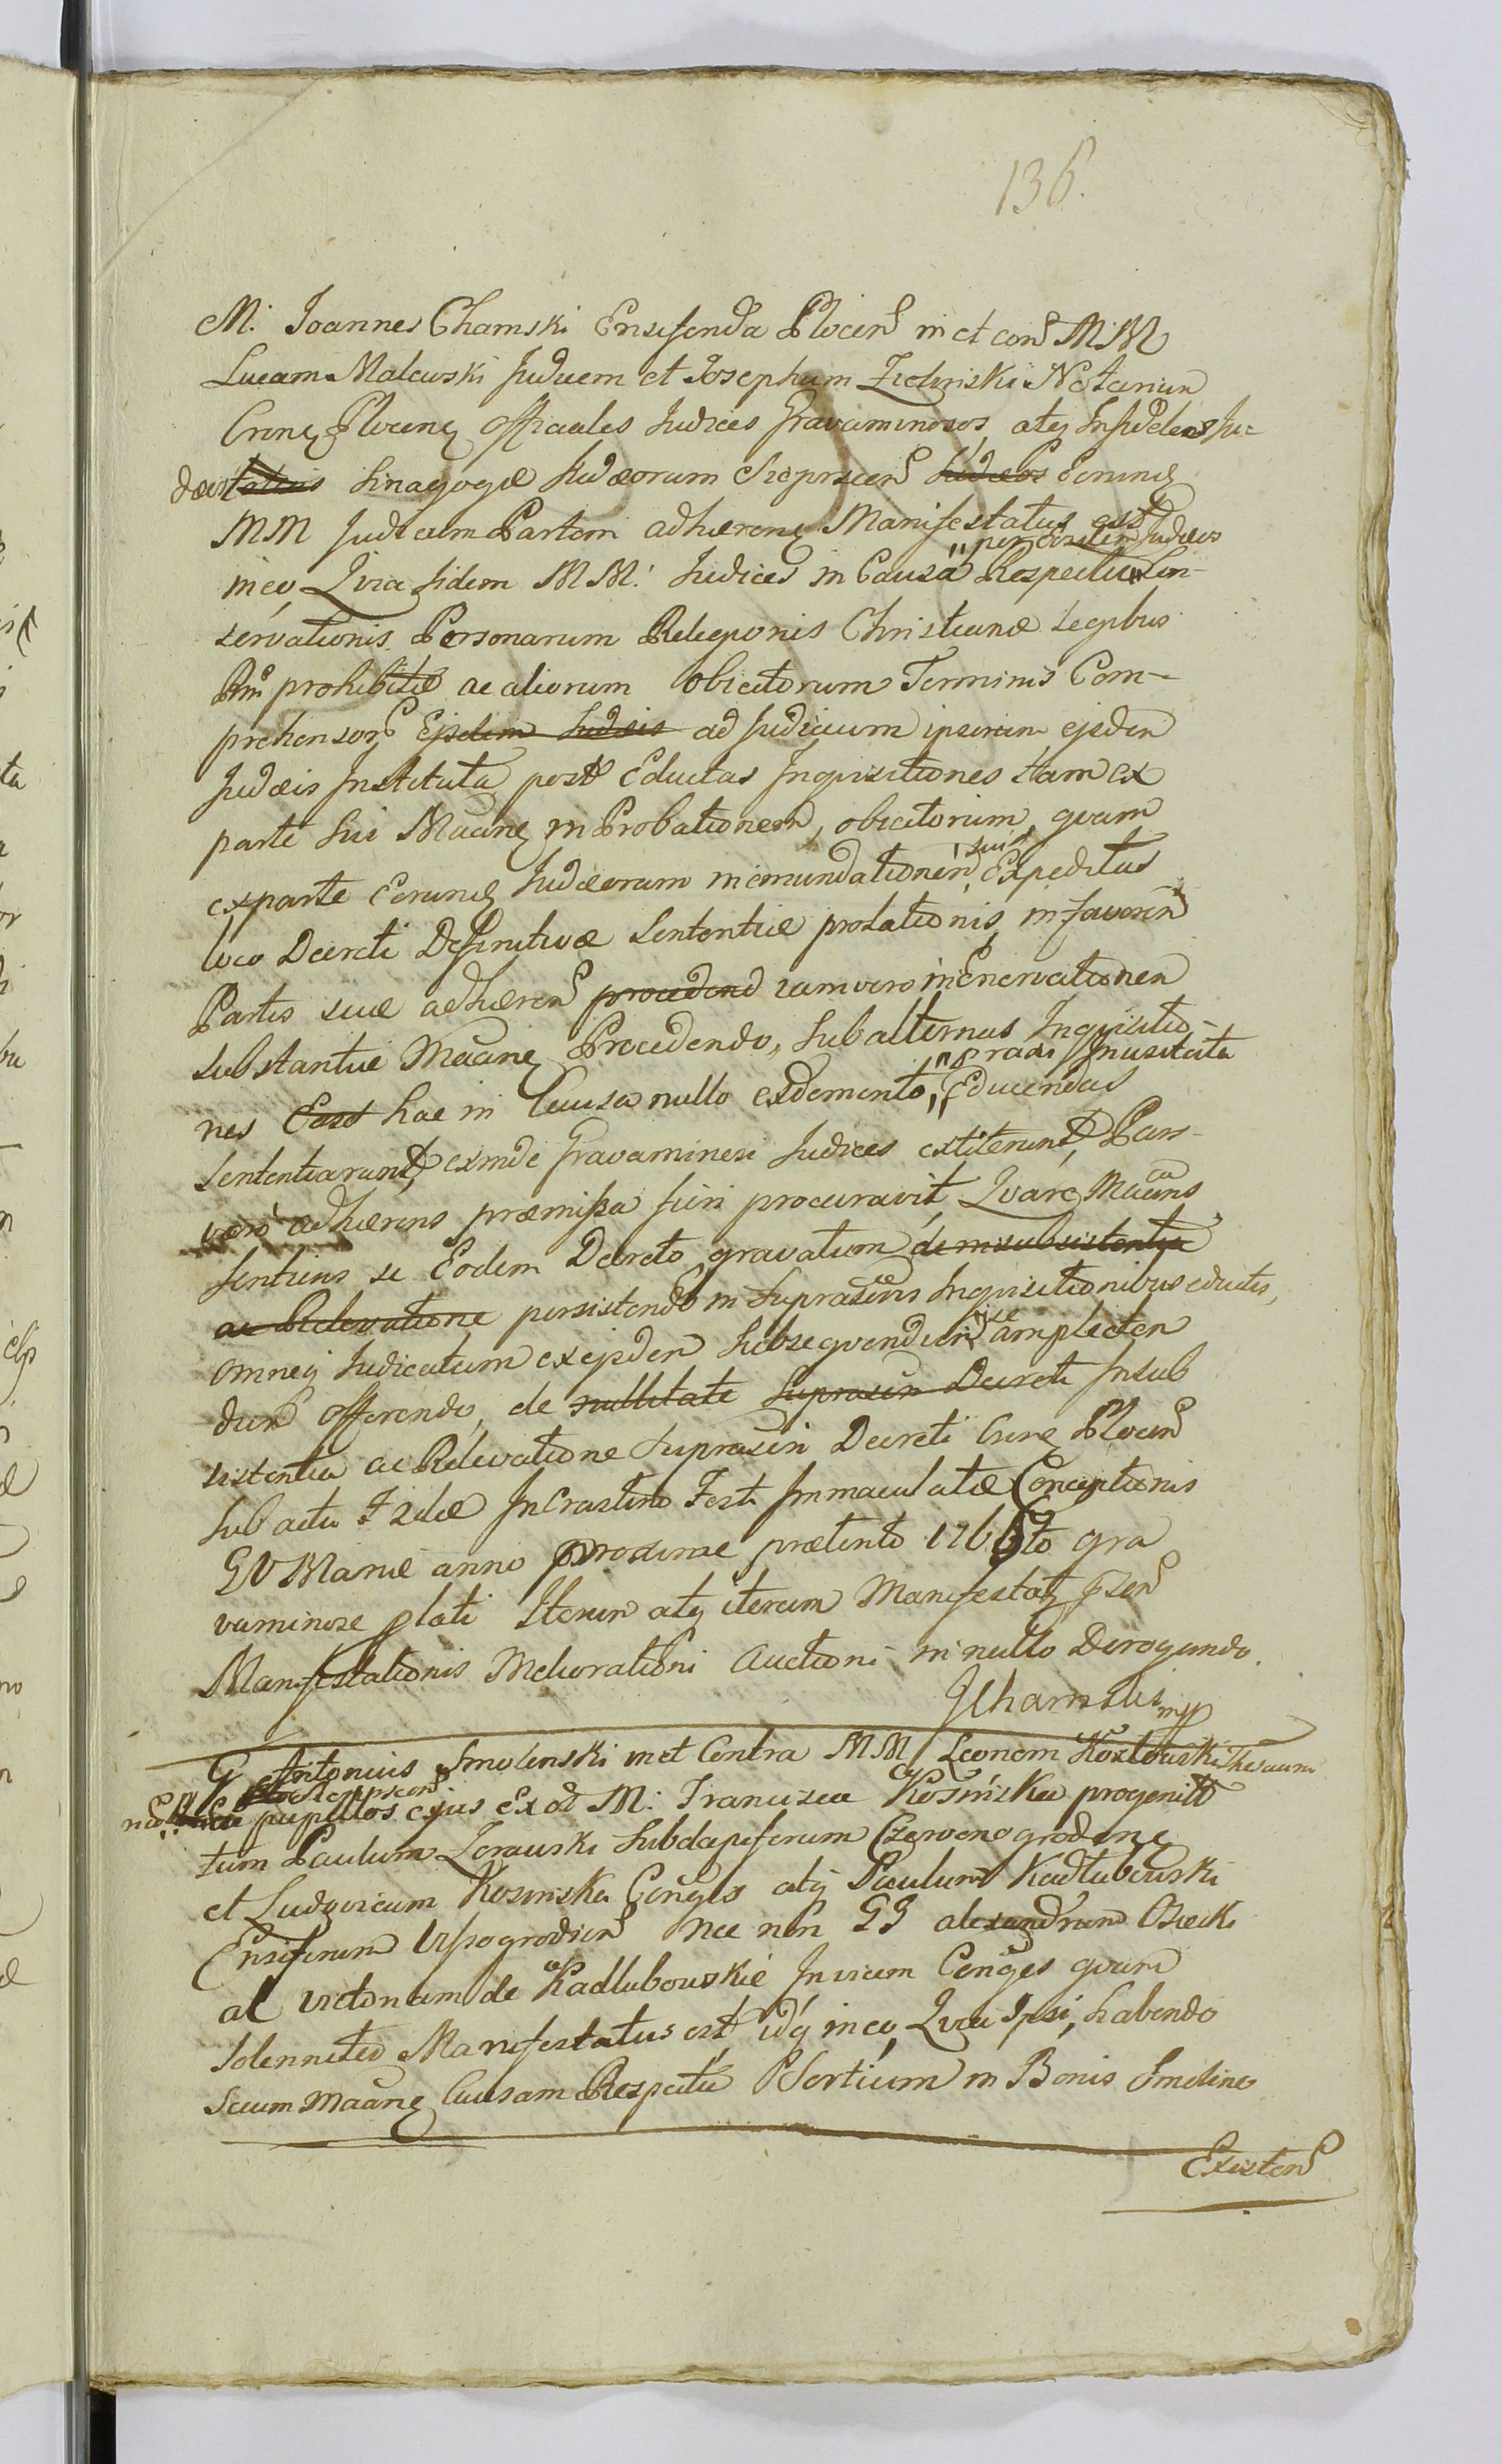 136.
M. Joannes Chamski Ensifenda Plocen in et con MM
Lucam Malewski Judicem et Josephum Zielinski Notarium
Crenę Plocenę Officiales Judices Gravaminosos, atq Infideles Ju-
dæos totius Sinagogæ Judæorum Sieprscen Judæos Eorundę
MM Judicum Partem adhærenę Manifestatus est
in eo, Qvia Iidem MM. Judices in Causa per eosdem Judæos Respectu Con-
servationis Personarum Religionis Christianæ Legibus
prohibitæ ac aliorum obiectorum Terminis Com-
prehensor Ejsdem Judæis ad Judicium ipsorum ejsdem
Judæis Instituta post Eductas Inqvisitiones tam ex
parte sui Maanę in Probationem, obiectorum, qvam
ex parte Eorundę Judæorum in emundationem sui Expeditas
loco Decreti Definitivæ Sententiæ prolationis, in favorem
Partis suæ adhæren procedend iam vero in Enervationem
substantiæ Maanę Procedendo, Subalternas Inqvisitio-
nes Easd hac in Causa nullo exdemento, praxi Inusitata Educendas
Sententiarunt, exinde Gravaminosi Judices extiterunt, Pars
vero adhærens præmissa fieri procuravit, Qvare Maans
sentiens se Eodem Decreto gravatum de insubsistentia
ac Relevatione persistendo in Suprascris Inqvisitionibus eductis,
omneq Judicatum ex ejsdem Subseqvendum amplecten
dum offerendo, de nullitate Suprascrin Decreti Insub
sistentia ac Relevatione Suprascrin Decreti Crenę Plocen
sub actu F 2dæ In Crastino Festi Immaculatæ Conceptionis
GV Mariæ anno proxime præterito 1765to gra
vaminose plati Iterum atq iterum Manifestatę pzen
Manifestationis Meliorationi Auctioni in nullo Derogando.
JChamski mp
G Antonius Smolenski in et Contra MM Leonem Kozłowski Thesaura
rium pupillos ejus ex od M. Francisca Kosinska progenitt
tum Paulum Zorawski Subdapiferum Czerwonogrodenę
et Ludovicam Kosinska Conges atq Paulum Kadłubowski
Ensiferum Wyszogrodien nec non GG alexandrum Osiecki
ac victoriam de Kadłubowskie Invicem Conges qvam
Solenniter Manifestatus est, idq in eo, Qvia Ipsi, habendo
secum Maanę Causam Respectu Sortium in Bonis Smolino
Existen